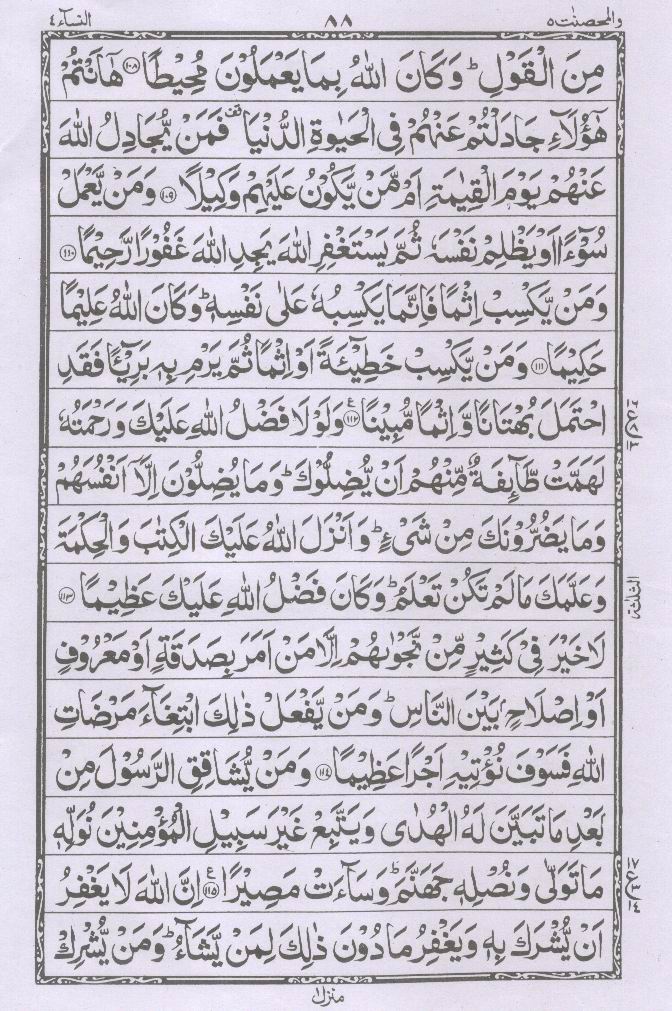 والمحصنٰت ٥ ٨٨ النسآء ٤
مِنَ الْقَوْلِ ؕ وَكَانَ اللّٰهُ بِمَا يَعْمَلُوْنَ مُحِيْطًا ﴿١٠٨﴾ هٰۤاَنْتُمْ
هٰۤؤُلَآءِ جَادَلْتُمْ عَنْهُمْ فِى الْحَيٰوةِ الدُّنْيَا ۫ فَمَنْ يُّجَادِلُ اللّٰهَ
عَنْهُمْ يَوْمَ الْقِيٰمَةِ اَمْ مَّنْ يَّكُوْنُ عَلَيْهِمْ وَكِيْلًا ﴿١٠٩﴾ وَمَنْ يَّعْمَلْ
سُوْٓءًا اَوْ يَظْلِمْ نَفْسَهٗ ثُمَّ يَسْتَغْفِرِ اللّٰهَ يَجِدِ اللّٰهَ غَفُوْرًا رَّحِيْمًا ﴿١١٠﴾
وَمَنْ يَّكْسِبْ اِثْمًا فَاِنَّمَا يَكْسِبُهٗ عَلٰى نَفْسِهٖ ؕ وَكَانَ اللّٰهُ عَلِيْمًا
حَكِيْمًا ﴿١١١﴾ وَمَنْ يَّكْسِبْ خَطِيْٓـئَةً اَوْ اِثْمًا ثُمَّ يَرْمِ بِهٖ بَرِيْٓـئًا فَقَدِ
احْتَمَلَ بُهْتَانًا وَّاِثْمًا مُّبِيْنًا ﴿١١٢﴾ ع وَلَوْلَا فَضْلُ اللّٰهِ عَلَيْكَ وَرَحْمَتُهٗ
لَهَمَّتْ طَّآئِفَةٌ مِّنْهُمْ اَنْ يُّضِلُّوْكَ ؕ وَمَا يُضِلُّوْنَ اِلَّاۤ اَنْفُسَهُمْ
وَمَا يَضُرُّوْنَكَ مِنْ شَىْءٍ ؕ وَاَنْزَلَ اللّٰهُ عَلَيْكَ الْكِتٰبَ وَالْحِكْمَةَ
وَعَلَّمَكَ مَا لَمْ تَكُنْ تَعْلَمُ ؕ وَكَانَ فَضْلُ اللّٰهِ عَلَيْكَ عَظِيْمًا ﴿١١٣﴾
لَا خَيْرَ فِىْ كَثِيْرٍ مِّنْ نَّجْوٰىهُمْ اِلَّا مَنْ اَمَرَ بِصَدَقَةٍ اَوْ مَعْرُوْفٍ
اَوْ اِصْلَاحٍۭ بَيْنَ النَّاسِ ؕ وَمَنْ يَّفْعَلْ ذٰلِكَ ابْتِغَآءَ مَرْضَاتِ
اللّٰهِ فَسَوْفَ نُؤْتِيْهِ اَجْرًا عَظِيْمًا ﴿١١٤﴾ وَمَنْ يُّشَاقِقِ الرَّسُوْلَ مِنْۢ
بَعْدِ مَا تَبَيَّنَ لَهُ الْهُدٰى وَيَتَّبِعْ غَيْرَ سَبِيْلِ الْمُؤْمِنِيْنَ نُوَلِّهٖ
مَا تَوَلّٰى وَنُصْلِهٖ جَهَنَّمَ ؕ وَسَآءَتْ مَصِيْرًا ﴿١١٥﴾ ع اِنَّ اللّٰهَ لَا يَغْفِرُ
اَنْ يُّشْرَكَ بِهٖ وَيَغْفِرُ مَا دُوْنَ ذٰلِكَ لِمَنْ يَّشَآءُ ؕ وَمَنْ يُّشْرِكْ
الثلثة
منزل ١